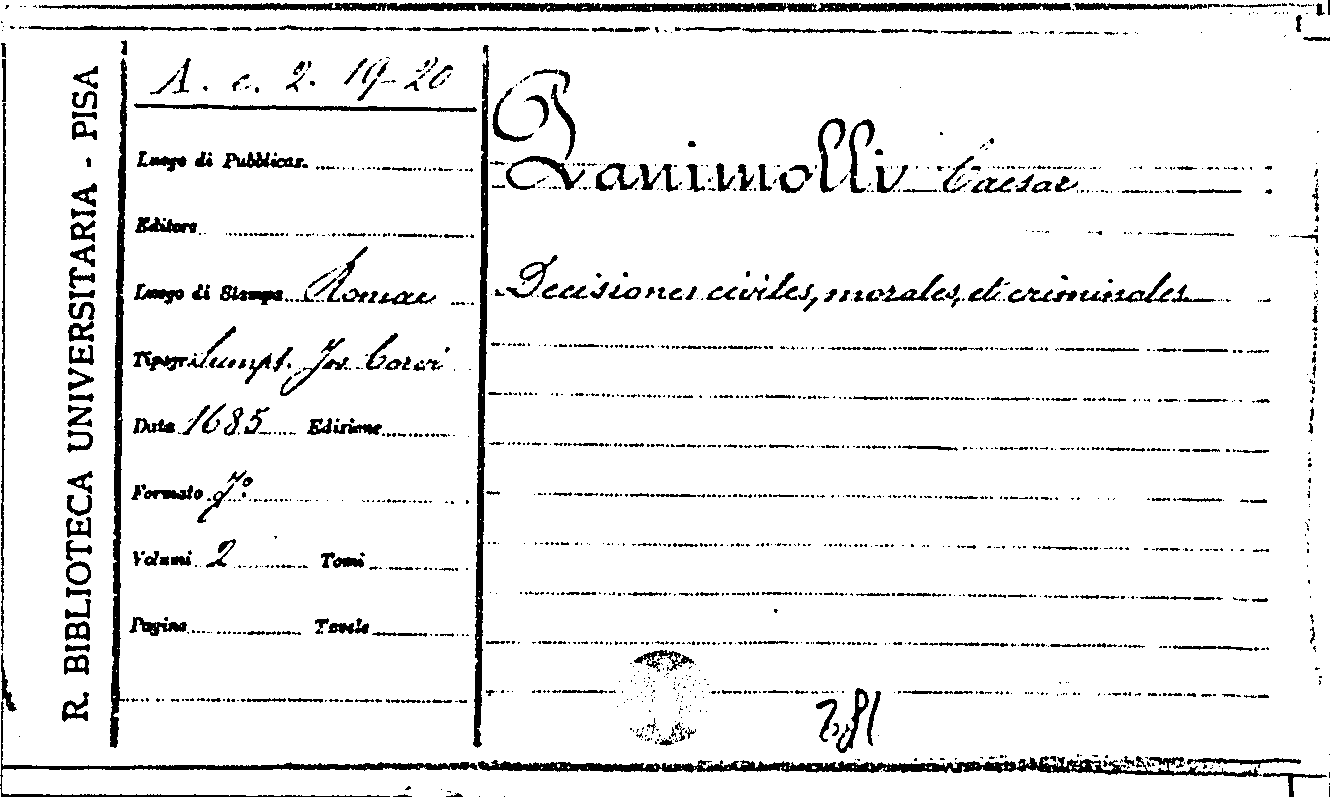 R. BIBLIOTECA UNIVERSITARIA - PISA
A. c. 2. 19-20
Luogo di Pubblicaz.
Editore
Luogo di Stampa Romae
Tipogr. Sumpt. Jos. Corvi
Data 1685 Edizione
Formato f.º
Volumi 2 Tomi
Pagine Tavole
Panimolli Caesar
Decisiones civiles, morales, et criminales